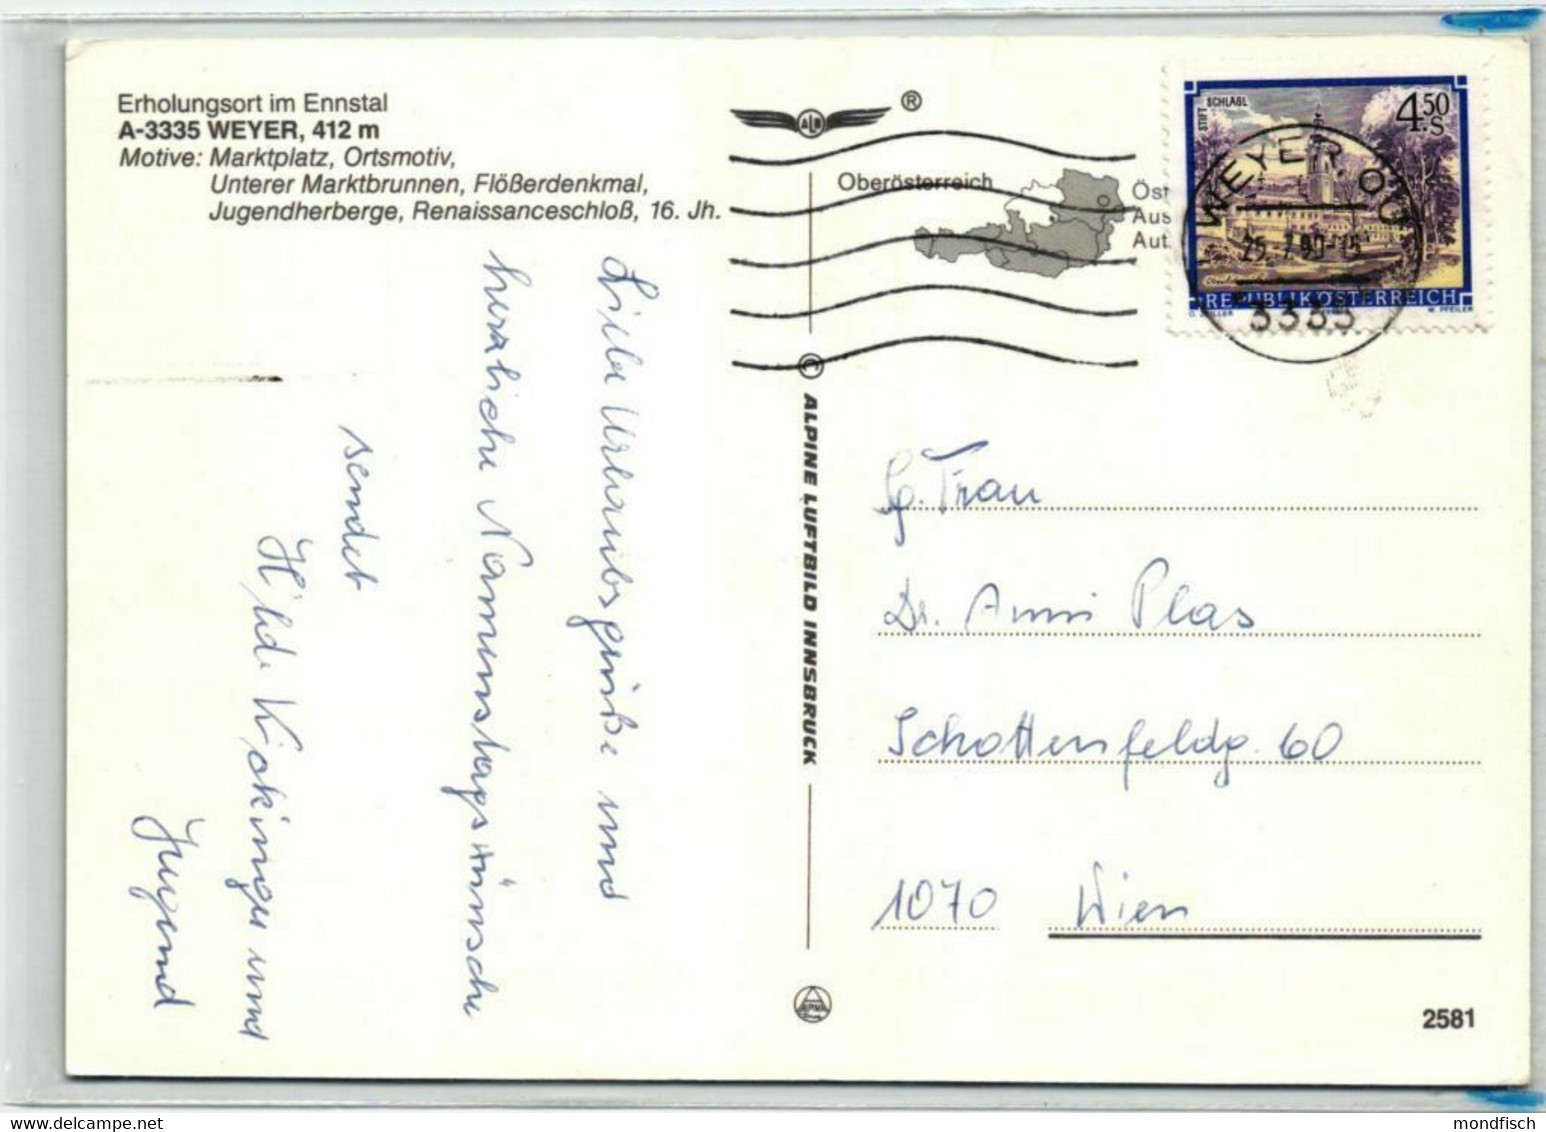 Erholungsort im Ennstal
A-3335 WEYER, 412 m
Motive: Marktplatz, Ortsmotiv,
Unterer Marktbrunnen, Flößerdenkmal,
Jugendherberge, Renaissanceschloß, 16. Jh.
Liebe Urlaubsgrüße und
herzliche Namenstagswünsche
sendet
Hilde Kickinger und
Jugend
ALB
®
Oberösterreich
Öst
Aus
Aut
STIFT SCHLÄGL
4.50
S
REPUBLIK ÖSTERREICH
W. PFEILER
WEYER OÖ
25.-7.90-15
3335
ALPINE LUFTBILD INNSBRUCK
g. Frau
Dr. Anni Plas
Schottenfeldg. 60
1070 Wien
2581
www.delcampe.net
mondfisch